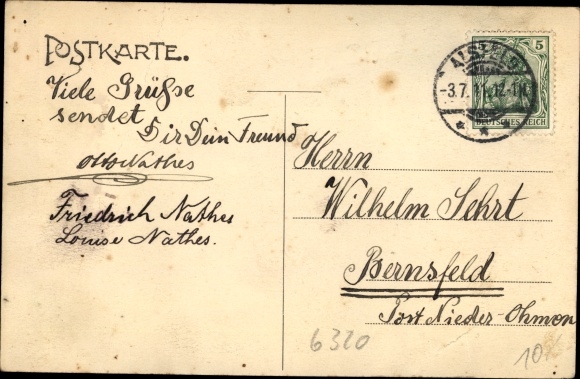 POSTKARTE.
Viele Grüße
sendet
Dir Dein Freund
Otto Nathes
Friedrich Nathes
Louise Nathes.
5
DEUTSCHES REICH
ALSFELD
-3.7.11. 12-1N.
Herrn
Wilhelm Sehrt
Bernsfeld
Post Nieder-Ohmen
6320